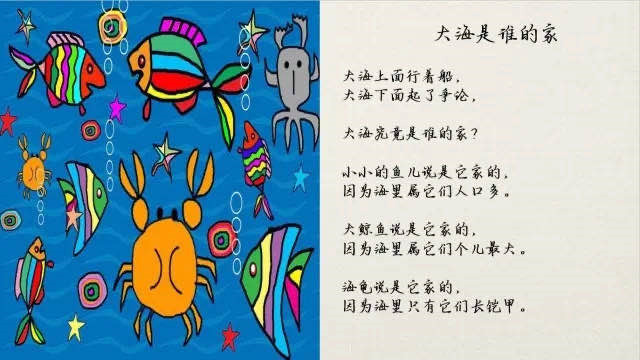 大海是谁的家
大海上面行着船，
大海下面起了争论，
大海究竟是谁的家？
小小的鱼儿说是它家的，
因为海里属它们人口多。
大鲸鱼说是它家的，
因为海里属它们个儿最大。
海龟说是它家的，
因为海里只有它们长铠甲。